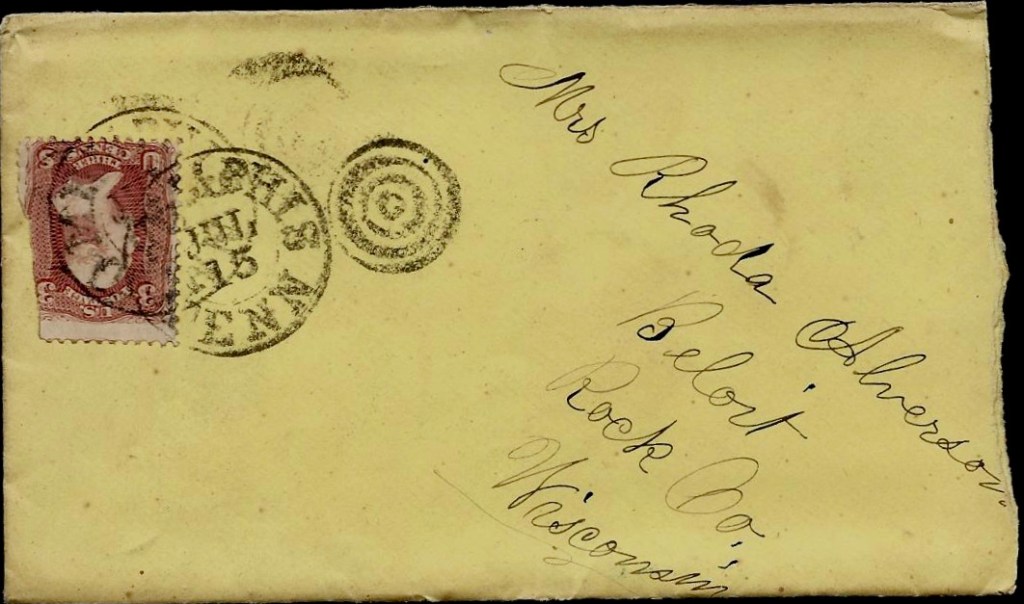 MEMPHIS TENN
JUL
15
G
3 U.S. 3
Mrs Rhoda Alverson
Beloit
Rock Co.
Wisconsin